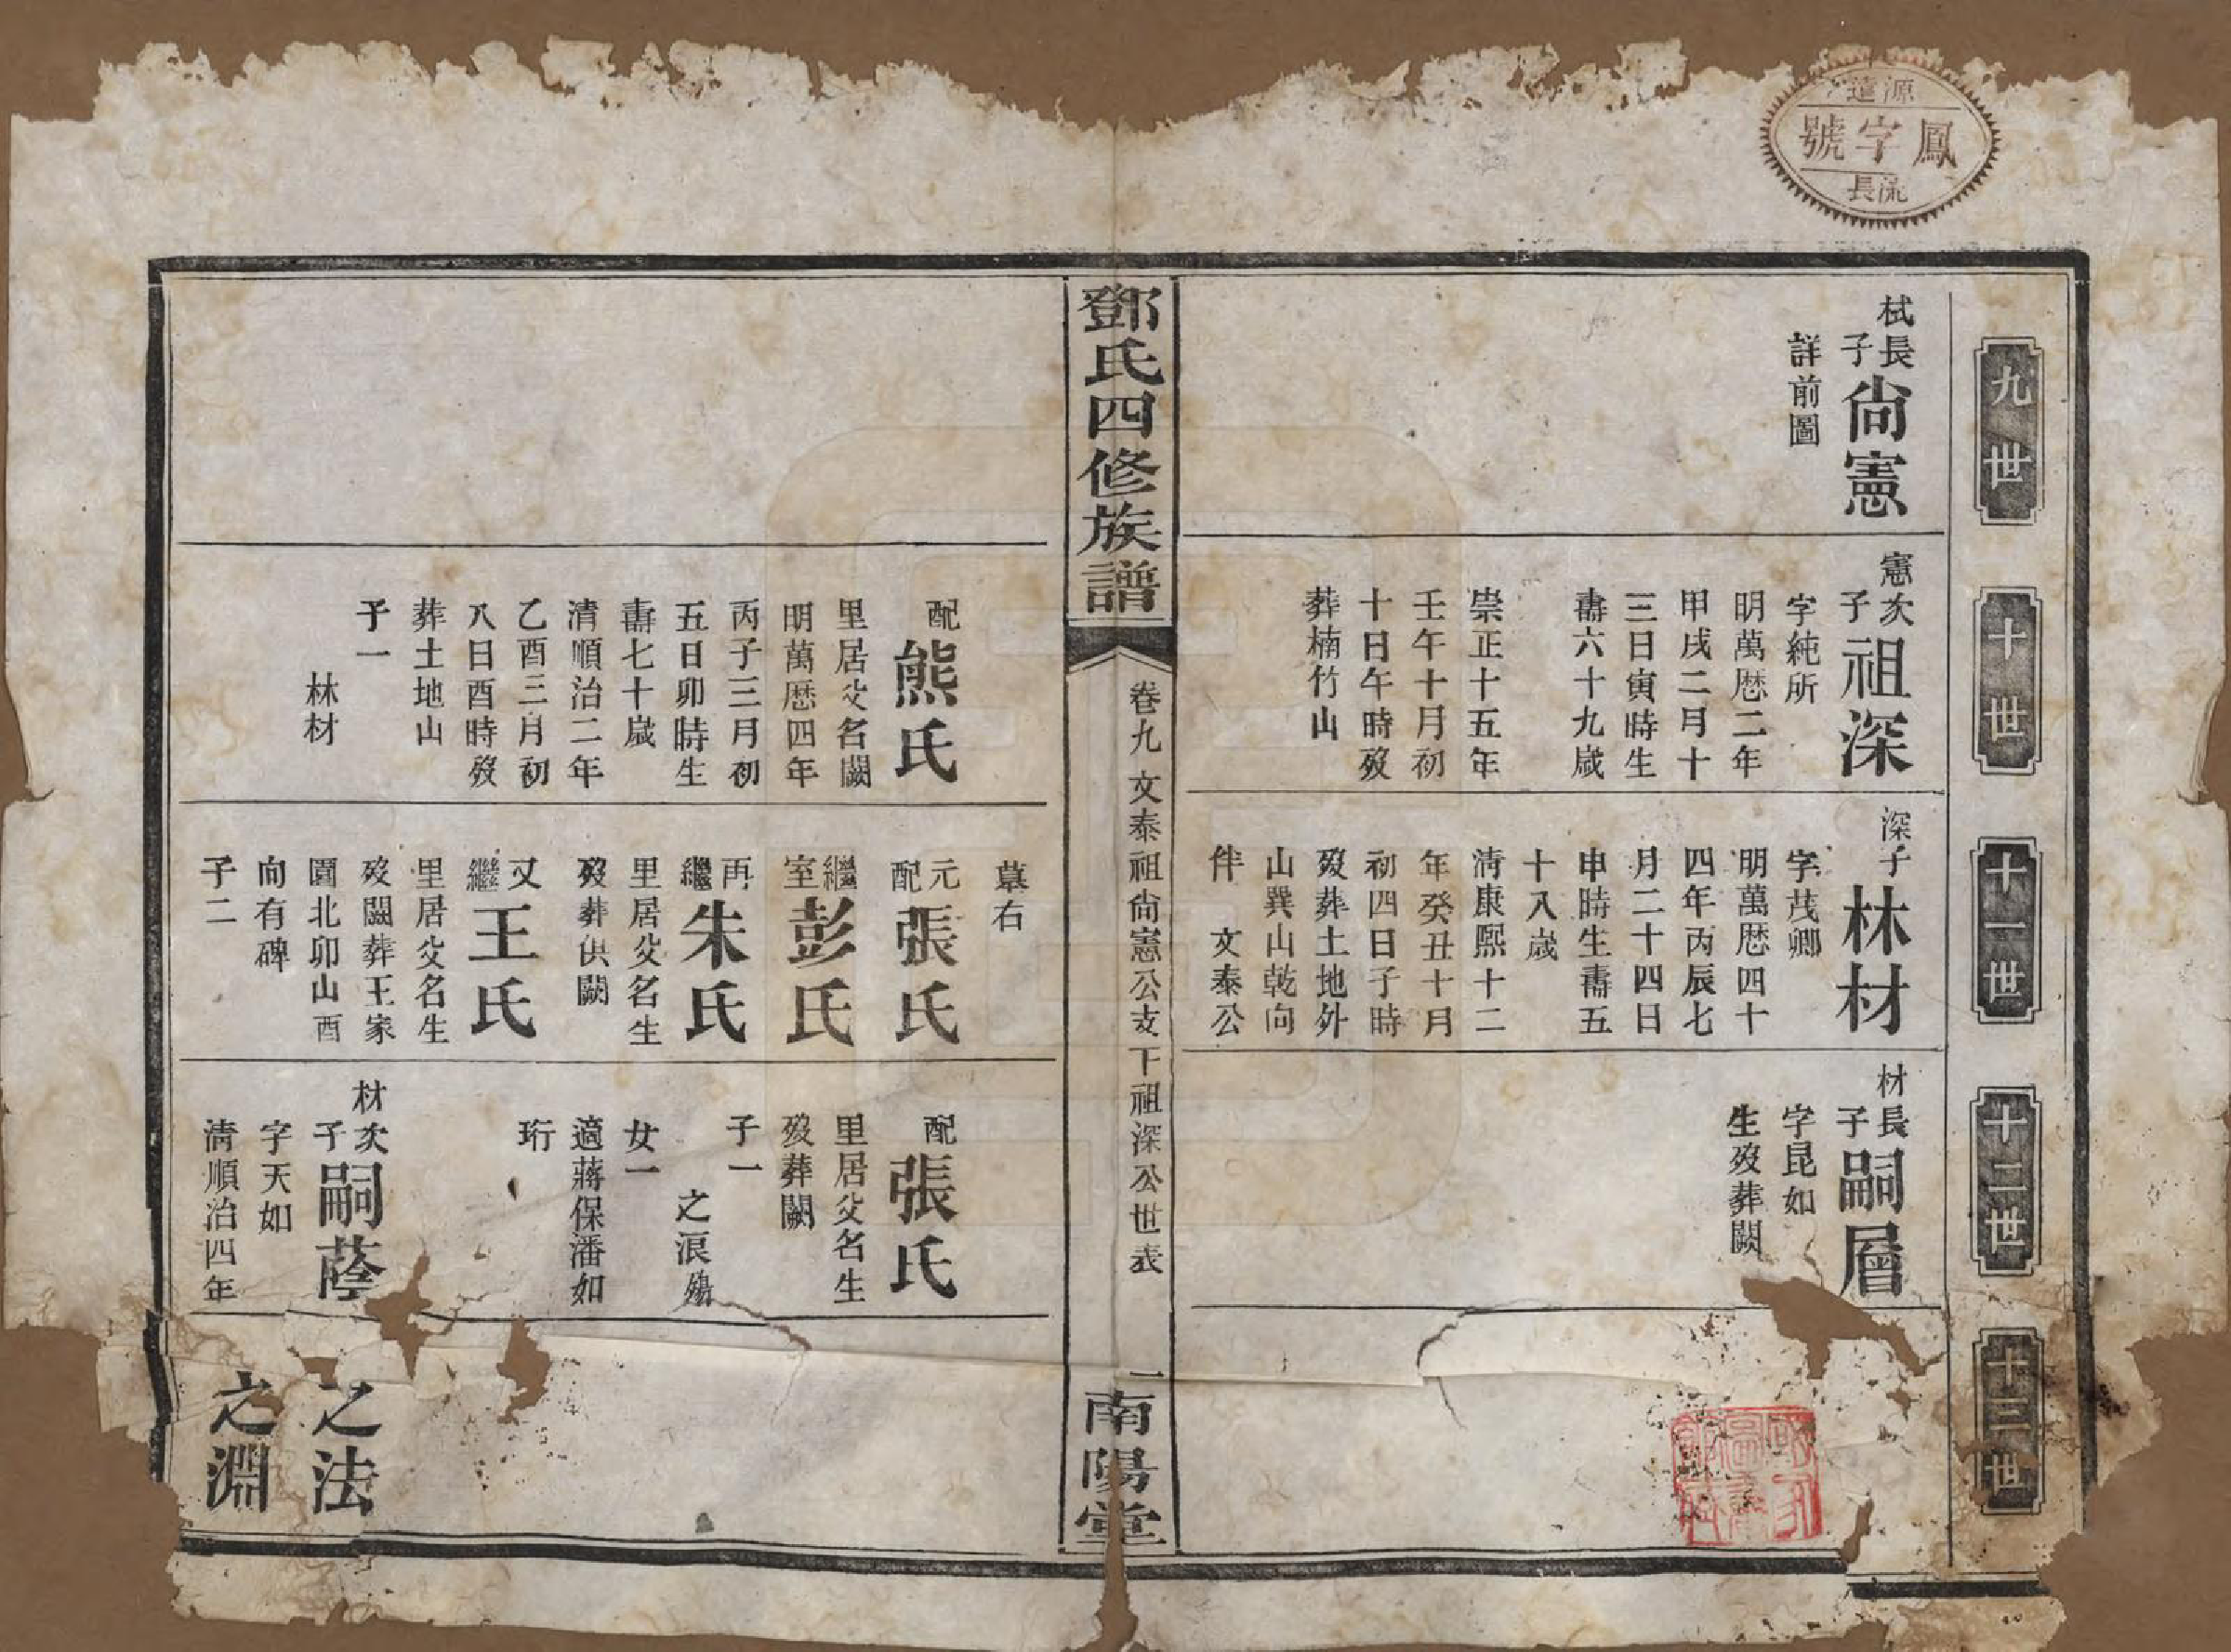 源遠
鳳字號
流長
九世
十世
十一世
十二世
十三世
栻長子尙憲
詳前圖
憲次子祖深
字純所
明萬歷二年
甲戌二月十
三日寅時生
壽六十九歲
崇正十五年
壬午十月初
十日午時歿
葬楠竹山
深子林材
字茂卿
明萬歷四十
四年丙辰七
月二十四日
申時生壽五
十八歲
清康熙十二
年癸丑十月
初四日子時
歿葬土地外
山巽山乾向
伴 文泰公
材長子嗣層
字昆如
生歿葬闕
鄧氏四修族譜
卷九 文泰祖尙憲公支下祖深公世表
一
南陽堂
配熊氏
里居父名闕
明萬歷四年
丙子三月初
五日卯時生
壽七十歲
清順治二年
乙酉三月初
八日酉時歿
葬土地山
子一
林材
墓右
元配張氏
繼室彭氏
再繼朱氏
里居父名生
歿葬俱闕
又繼王氏
里居父名生
歿闕葬王家
園北卯山酉
向有碑
子二
配張氏
里居父名生
歿葬闕
子一
之浪殤
女一
適蔣保潘如
珩
材次子嗣蔭
字天如
清順治四年
之法
之淵